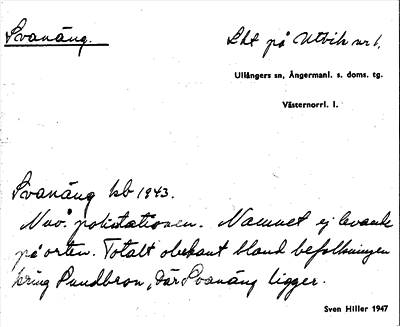 Svanäng.
Lht på Utvik nr 1.
Ullångers sn, Ångermanl. s. doms. tg.
Västernorrl. l.
Svanäng kb 1943.
Nuv. polisstationen. Namnet ej levande
på orten. Totalt obekant bland befolkningen
kring Sundbron, där Svanäng ligger.
Sven Hiller 1947